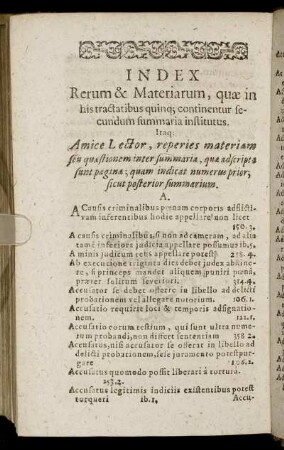 INDEX
Rerum & Materiarum, quæ in
his tractatibus quinq; continentur se-
cundum summaria institutus.
Itaq;
Amice Lector, reperies materiam
seu quæstionem inter summaria, quæ adscripta
sunt paginæ, quam indicat numerus prior,
sicut posterior summarium.
A.
A Causis criminalibus pœnam corporis adflicti-
vam inferentibus hodie appellare non licet
150. 3.
A causis criminalibus, si non ad cameram, ad alia
tamē inferiora judicia appellare possumus ib. 5.
A minis judicum tutò appellare potest? 278. 4.
Ab executione exigenti dies debet judex abstine-
re, si princeps mandet aliquem puniri pœnâ,
præter solitum severiori. 314. 4.
Accusator se debet offerre in libello ad delicti
probationem vel allegare notorium. 106. 1.
Accusatio requirit loci & temporis adsignatio-
nem. 121. 1.
Accusatio eorum testium, qui sunt ultra nume-
rum probandi, non differt sententiam 358 2.
Accusatus, nisi accusator se offerat in libello ad
delicti probationem, sese juramento potest pur-
gare 106. 2.
Accusatus quomodo possit liberari à tortura.
253. 2.
Accusatus legitimis judiciis existentibus potest
torqueri ib. 1, Accu-